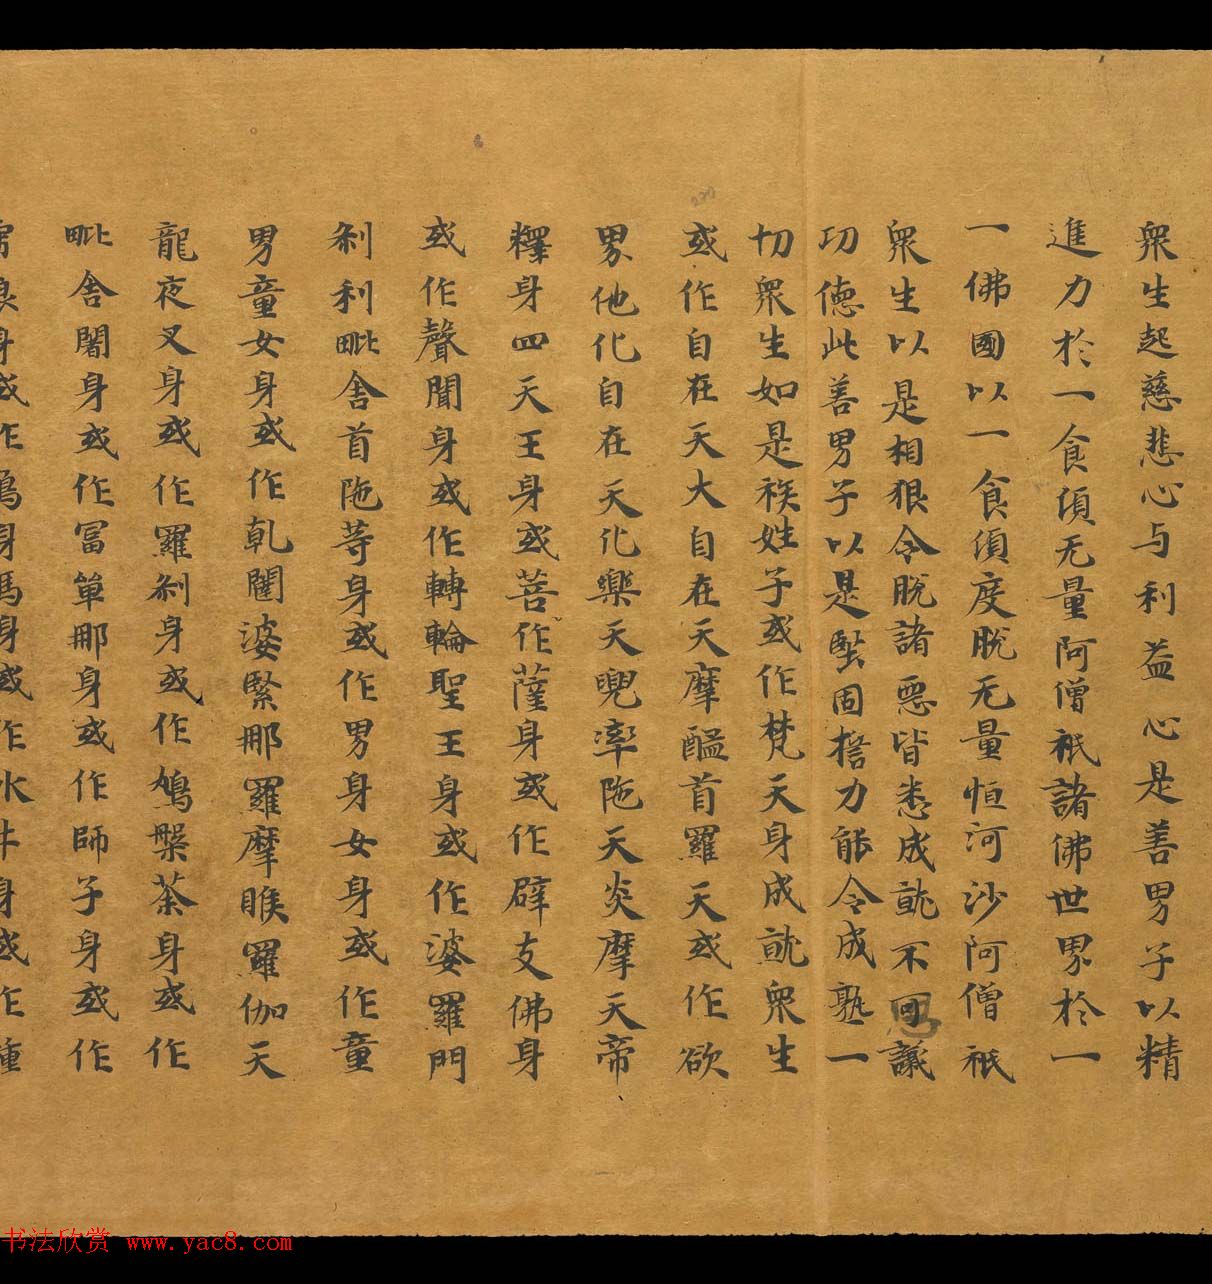 衆生起慈悲心与利益心是善男子以精
進力於一食湏无量阿僧祇諸佛世界於一
一佛國以一食湏度脫无量恒河沙阿僧祇
衆生以是相狠令脫諸惡皆悉成就不可思議
功德此善男子以是堅固擔力能令成熟一
切衆生如是族姓子或作梵天身成就衆生
或作自在天大自在天摩醯首羅天或作欲
界他化自在天化樂天兜率陁天炎摩天帝
釋身四天王身或菩作薩身或作辟支佛身
或作聲聞身或作轉輪聖王身或作婆羅門
刹利毗舍首陁等身或作男身女身或作童
男童女身或作乹闥婆緊那羅摩睺羅伽天
龍夜叉身或作羅刹身或作鳩槃茶身或作
毗舍闍身或作冨單那身或作師子身或作
身或作鳥身馬身或作水牛身或作種
书法欣赏 www.yac8.com